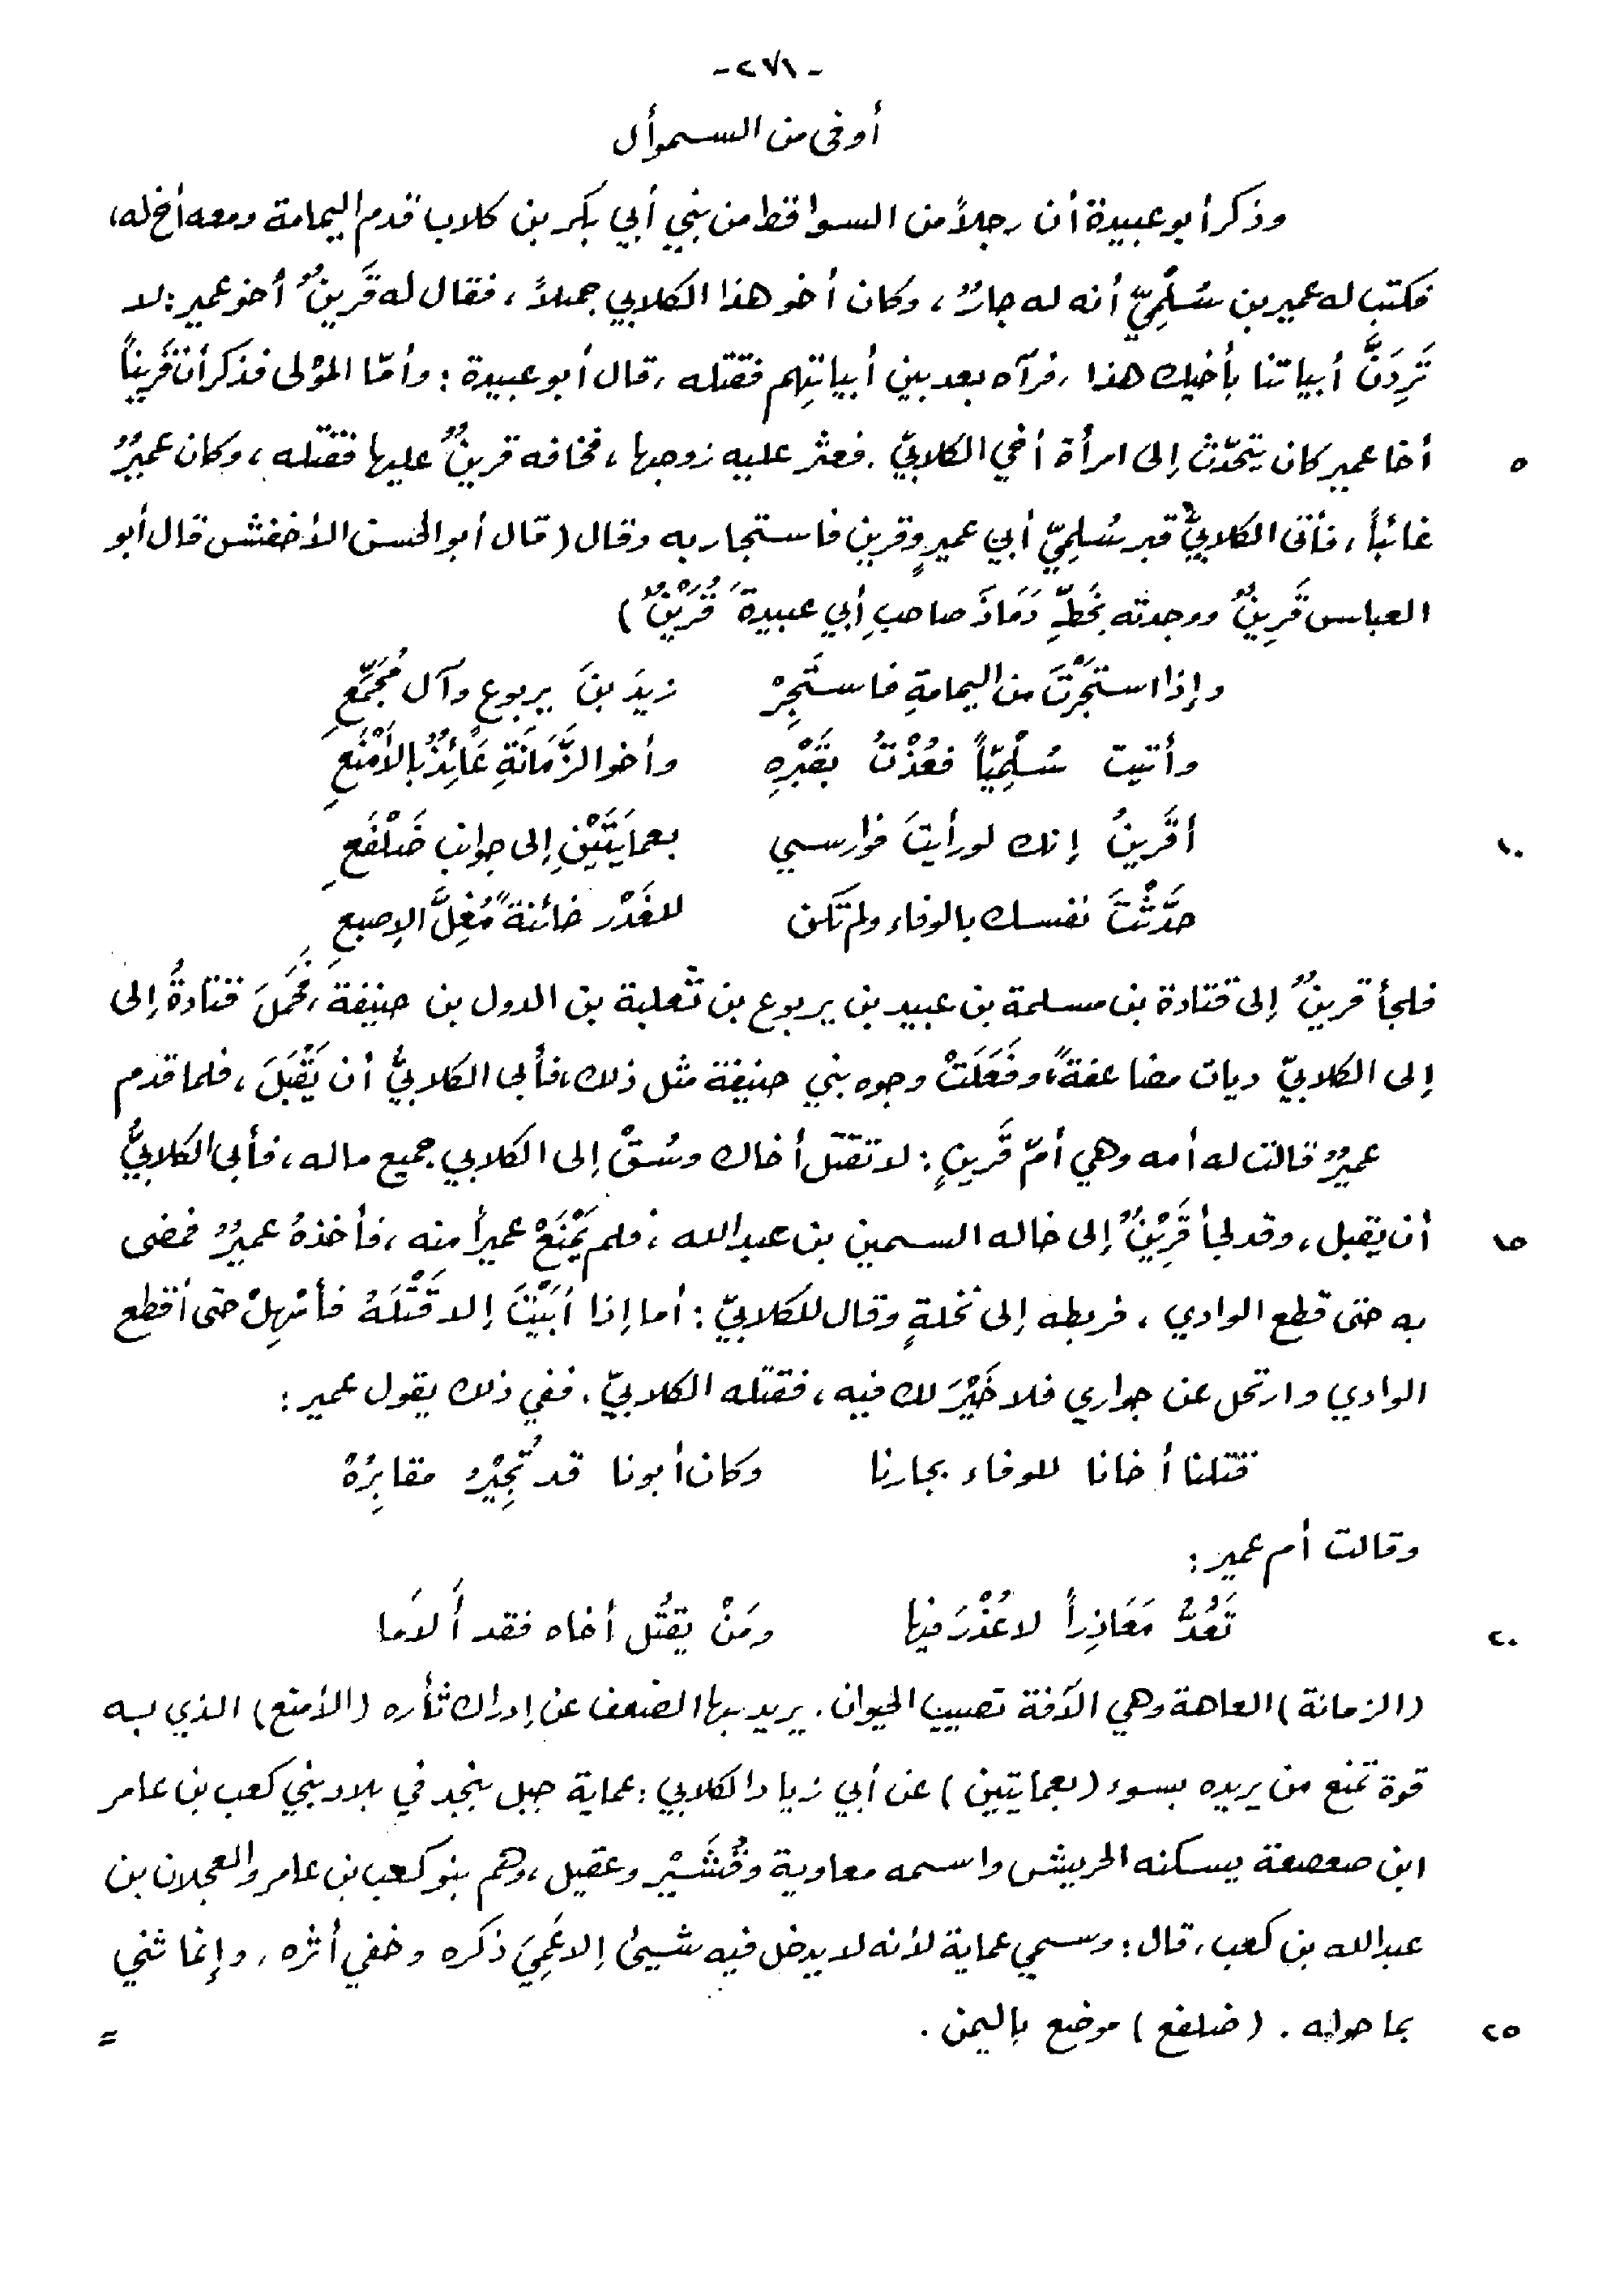 -٢٧١-
أوفى من السموأل
وذكر أبو عبيدة أن رجلاً من السواقط من بني أبي بكر بن كلاب قدم اليمامة ومعه أخ له،
فكتب له عمير بن سُلْمِيّ أنه له جارٌ، وكان أخو هذا الكلابي جميلاً، فقال له قَرينٌ أخو عمير: لا
تَرِدَنَّ أبياتنا بأخيك هذا، فرآه بعد بين أبياتِهم فقتله، قال أبو عبيدة: وأمّا المَوْلى فذكر أن قَريناً
٥ أخا عمير كان يتحدّث إلى امرأة أخي الكلابيّ. فعثر عليه زوجها، فخافه قرينٌ عليها فقتله، وكان عميرٌ
غائباً، فأتى الكلابيُّ قبر سُلمِيّ أبي عميرٍ وقرين فاستجار به وقال (قال أبو الحسن الأخفش قال أبو
العباس قَرِينٌ ووجدته بخَطِّ دَمَاذَ صاحبِ أبي عبيدةَ قُرَيْنٌ)
وإذا استَجَرْتَ من اليمامةِ فاستَجِرْ زيدَ بنَ يربوعٍ وآل مُجَمِّعِ
وأتيت سُلْمِيّاً فعُذْتُ بقَبْرِهِ وأخو الزَّمَانَةِ عَائِذٌ بالأَمْنَعِ
١٠ أقَرينُ إنك لو رأيتَ فوارسي بعمايَتَيْنِ إلى جوانب ضَلْفَعِ
حَدَّثْتَ نفسك بالوفاء ولم تَكن للغَدْر خائنةً مُغِلَّ الإصبعِ
فلجأ قرينٌ إلى قتادة بن مسلمة بن عبيد بن يربوع بن ثعلبة بن الدول بن حنيفة، فَحَمَلَ قتادةُ إلى
إلى الكلابيّ ديات مضاعفةً، وفَعَلَتْ وجوه بني حنيفة مثل ذلك، فأبى الكلابيُّ أن يَقْبَلَ، فلما قدم
عميرٌ قالت له أمه وهي أمّ قَرينٍ: لا تقتل أخاك وسُقْ إلى الكلابي جميع ماله، فأبى الكلابيُّ
١٥ أن يقبل، وقد لجأ قَرِيْنٌ إلى خاله السمين بن عبدالله، فلم يَمْنَعْ عميراً منه، فأخذهُ عميرٌ فمضى
به حتى قطع الوادي، فربطه إلى نخلةٍ وقال للكلابيّ: أما إذا أبَيْتَ إلا قَتْلَهُ فأمْهِلْ حتى أقطع
الوادي وارتحل عن جواري فلا خَيْرَ لك فيه، فقتله الكلابيّ. ففي ذلك يقول عمير:
قتلنا أخانا للوفاء بجارنا وكان أبونا قد تُجِيْرُ مقابِرُهْ
وقالت أم عمير:
٢٠ تَعُدُّ مَعَاذِراً لا عُذْرَ فيها ومَنْ يقتُل أخاه فقد أَلاَمَا
(الزمانة) العاهة وهي الآفة تصيب الحيوان. يريد بها الضعف عن إدراك ثأره (الأمنع) الذي به
قوة تمنع من يريده بسوء (بعمايتين) عن أبي زياد الكلابي: عماية جبل بنجد في بلاد بني كعب بن عامر
ابن صعصعة يسكنه الحريش واسمه معاوية وقُشَيْر وعقيل، وهم بنو كعب بن عامر والعجلان بن
عبدالله بن كعب، قال: وسمي عماية لأنه لا يدخل فيه شيئ إلا عَمِيَ ذكره وخفي أثره، وإنما ثني
٢٥ بما حوله. (ضلفع) موضع باليمن. =